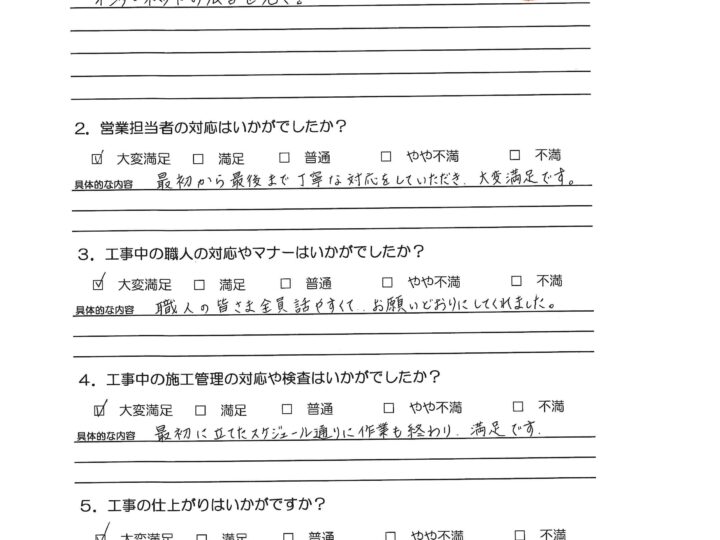 2．営業担当者の対応はいかがでしたか？
☑ 大変満足 □ 満足 □ 普通 □ やや不満 □ 不満
具体的な内容 最初から最後まで丁寧な対応をしていただき、大変満足です。
3．工事中の職人の対応やマナーはいかがでしたか？
☑ 大変満足 □ 満足 □ 普通 □ やや不満 □ 不満
具体的な内容 職人の皆さま全員話やすくて、お願いどおりにしてくれました。
4．工事中の施工管理の対応や検査はいかがでしたか？
☑ 大変満足 □ 満足 □ 普通 □ やや不満 □ 不満
具体的な内容 最初に立てたスケジュール通りに作業も終わり、満足です.
5．工事の仕上がりはいかがですか？
☑ 大変満足 □ 満足 □ 普通 □ やや不満 □ 不満